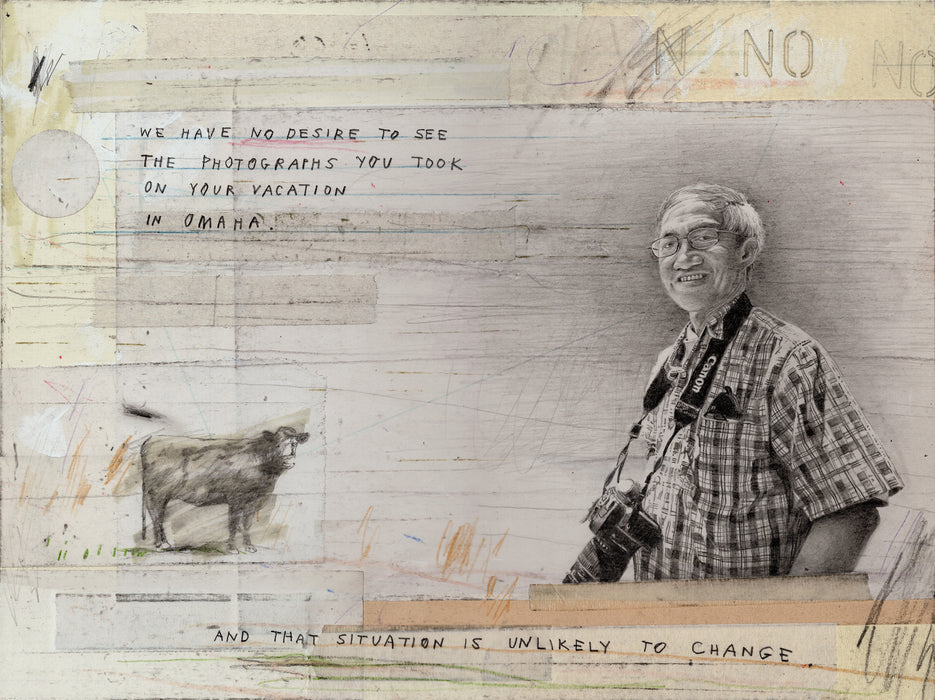 N NO NO
WE HAVE NO DESIRE TO SEE
THE PHOTOGRAPHS YOU TOOK
ON YOUR VACATION
IN OMAHA.
Canon
AND THAT SITUATION IS UNLIKELY TO CHANGE.